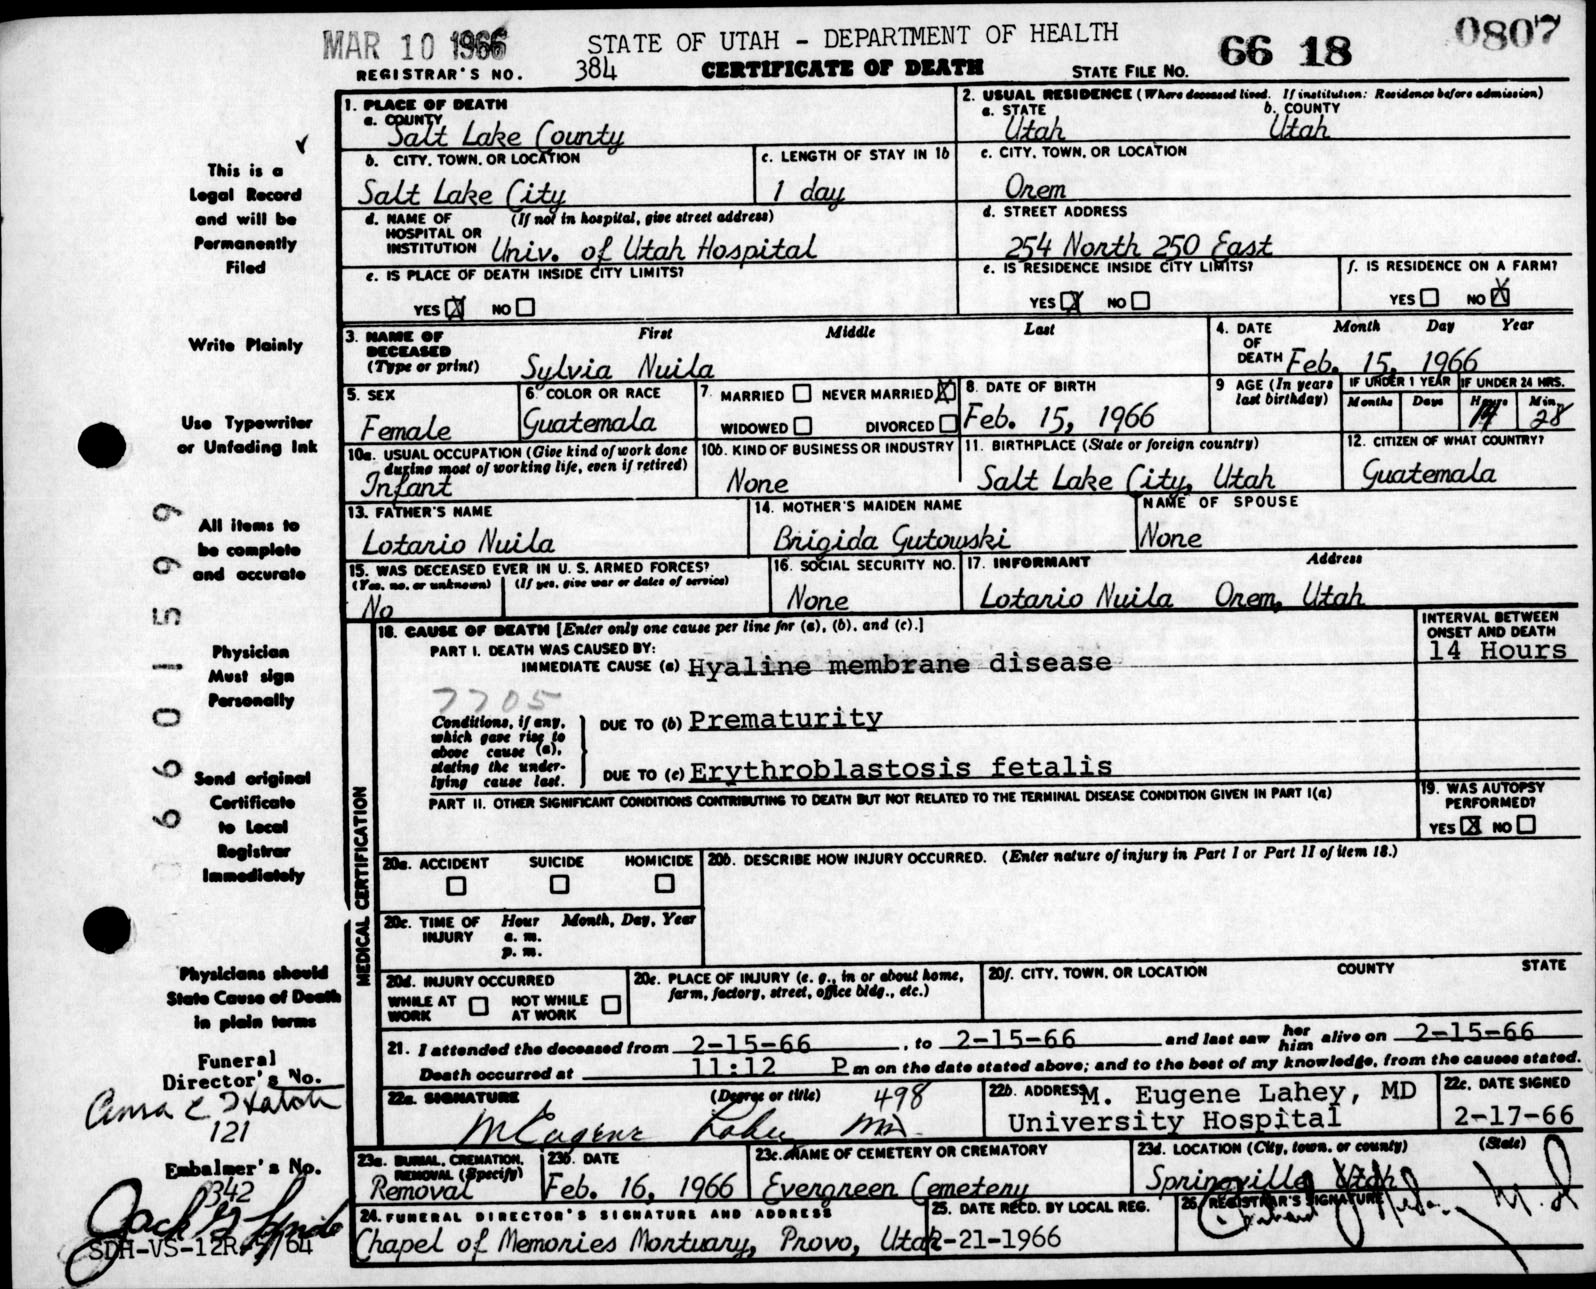 MAR 10 1966
STATE OF UTAH - DEPARTMENT OF HEALTH
66 18 0807
REGISTRAR'S NO. 384 CERTIFICATE OF DEATH STATE FILE NO.
1. PLACE OF DEATH
a. COUNTY
Salt Lake County
2. USUAL RESIDENCE (Where deceased lived. If institution: Residence before admission)
a. STATE b. COUNTY
Utah Utah
b. CITY, TOWN, OR LOCATION
Salt Lake City
c. LENGTH OF STAY IN 1b
1 day
c. CITY, TOWN, OR LOCATION
Orem
d. NAME OF HOSPITAL OR INSTITUTION (If not in hospital, give street address)
Univ. of Utah Hospital
d. STREET ADDRESS
254 North 250 East
e. IS PLACE OF DEATH INSIDE CITY LIMITS?
YES X NO
e. IS RESIDENCE INSIDE CITY LIMITS?
YES X NO
f. IS RESIDENCE ON A FARM?
YES NO X
3. NAME OF DECEASED (Type or print)
First Middle Last
Sylvia Nuila
4. DATE OF DEATH
Month Day Year
Feb. 15, 1966
5. SEX
Female
6. COLOR OR RACE
Guatemala
7. MARRIED NEVER MARRIED X
WIDOWED DIVORCED
8. DATE OF BIRTH
Feb. 15, 1966
9 AGE (In years last birthday)
IF UNDER 1 YEAR
Months Days
IF UNDER 24 HRS.
Hours Min.
14 28
10a. USUAL OCCUPATION (Give kind of work done during most of working life, even if retired)
Infant
10b. KIND OF BUSINESS OR INDUSTRY
None
11. BIRTHPLACE (State or foreign country)
Salt Lake City, Utah
12. CITIZEN OF WHAT COUNTRY?
Guatemala
13. FATHER'S NAME
Lotario Nuila
14. MOTHER'S MAIDEN NAME
Brigida Gutowski
NAME OF SPOUSE
None
15. WAS DECEASED EVER IN U. S. ARMED FORCES?
(Yes, no, or unknown) (If yes, give war or dates of service)
No
16. SOCIAL SECURITY NO.
None
17. INFORMANT Address
Lotario Nuila Orem, Utah
MEDICAL CERTIFICATION
18. CAUSE OF DEATH [Enter only one cause per line for (a), (b), and (c).]
INTERVAL BETWEEN ONSET AND DEATH
PART I. DEATH WAS CAUSED BY:
IMMEDIATE CAUSE (a) Hyaline membrane disease 14 Hours
7705
Conditions, if any, which gave rise to above cause (a), stating the underlying cause last.
DUE TO (b) Prematurity
DUE TO (c) Erythroblastosis fetalis
PART II. OTHER SIGNIFICANT CONDITIONS CONTRIBUTING TO DEATH BUT NOT RELATED TO THE TERMINAL DISEASE CONDITION GIVEN IN PART I(a)
19. WAS AUTOPSY PERFORMED?
YES X NO
20a. ACCIDENT SUICIDE HOMICIDE
20b. DESCRIBE HOW INJURY OCCURRED. (Enter nature of injury in Part I or Part II of item 18.)
20c. TIME OF INJURY Hour Month, Day, Year
a. m.
p. m.
20d. INJURY OCCURRED
WHILE AT WORK NOT WHILE AT WORK
20e. PLACE OF INJURY (e. g., in or about home, farm, factory, street, office bldg., etc.)
20f. CITY, TOWN, OR LOCATION COUNTY STATE
21. I attended the deceased from 2-15-66, to 2-15-66 and last saw her him alive on 2-15-66
Death occurred at 11:12 P m on the date stated above; and to the best of my knowledge, from the causes stated.
22a. SIGNATURE (Degree or title) 498
M Eugene Lahey MD.
22b. ADDRESS M. Eugene Lahey, MD
University Hospital
22c. DATE SIGNED
2-17-66
23a. BURIAL, CREMATION, REMOVAL (Specify)
Removal
23b. DATE
Feb. 16, 1966
23c. NAME OF CEMETERY OR CREMATORY
Evergreen Cemetery
23d. LOCATION (City, town, or county) (State)
Springville, Utah
24. FUNERAL DIRECTOR'S SIGNATURE AND ADDRESS
Chapel of Memories Mortuary, Provo, Utah
25. DATE RECD. BY LOCAL REG.
2-21-1966
26. REGISTRAR'S SIGNATURE
This is a
Legal Record
and will be
Permanently
Filed
Write Plainly
Use Typewriter
or Unfading Ink
All items to
be complete
and accurate
Physician
Must sign
Personally
Send original
Certificate
to Local
Registrar
Immediately
Physicians should
State Cause of Death
in plain terms
Funeral
Director's No.
121
Embalmer's No.
342
SDH-VS-12R
64
6601599